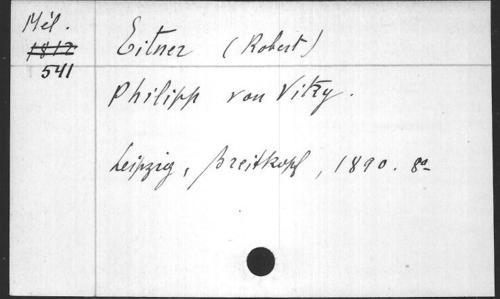 Mél.
1812
541
Eitner (Robert)
Philipp von Vitry.
Leipzig, Breitkopf, 1890. 8°